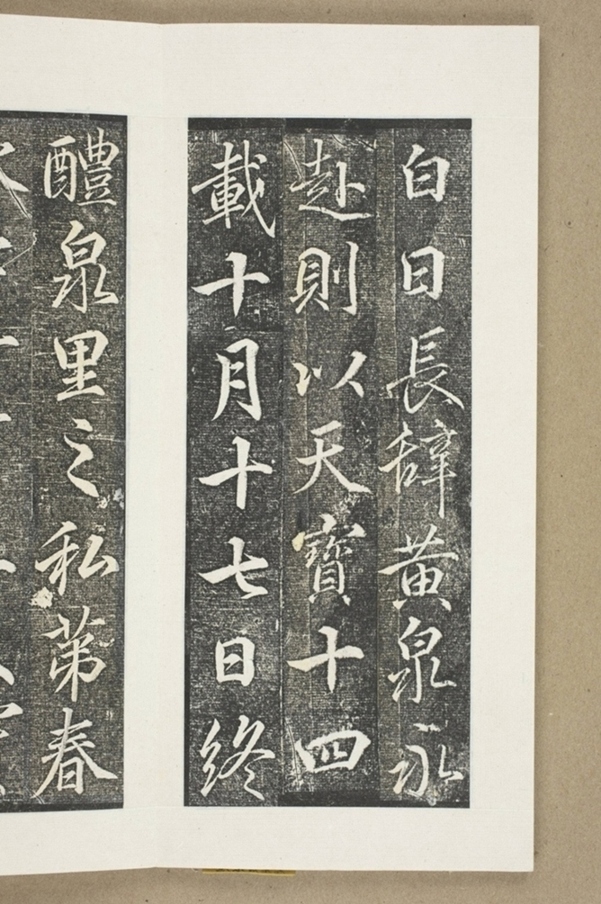 白日長辭黃泉永
赴則以天寶十四
載十月十七日終
醴泉里之私苐春